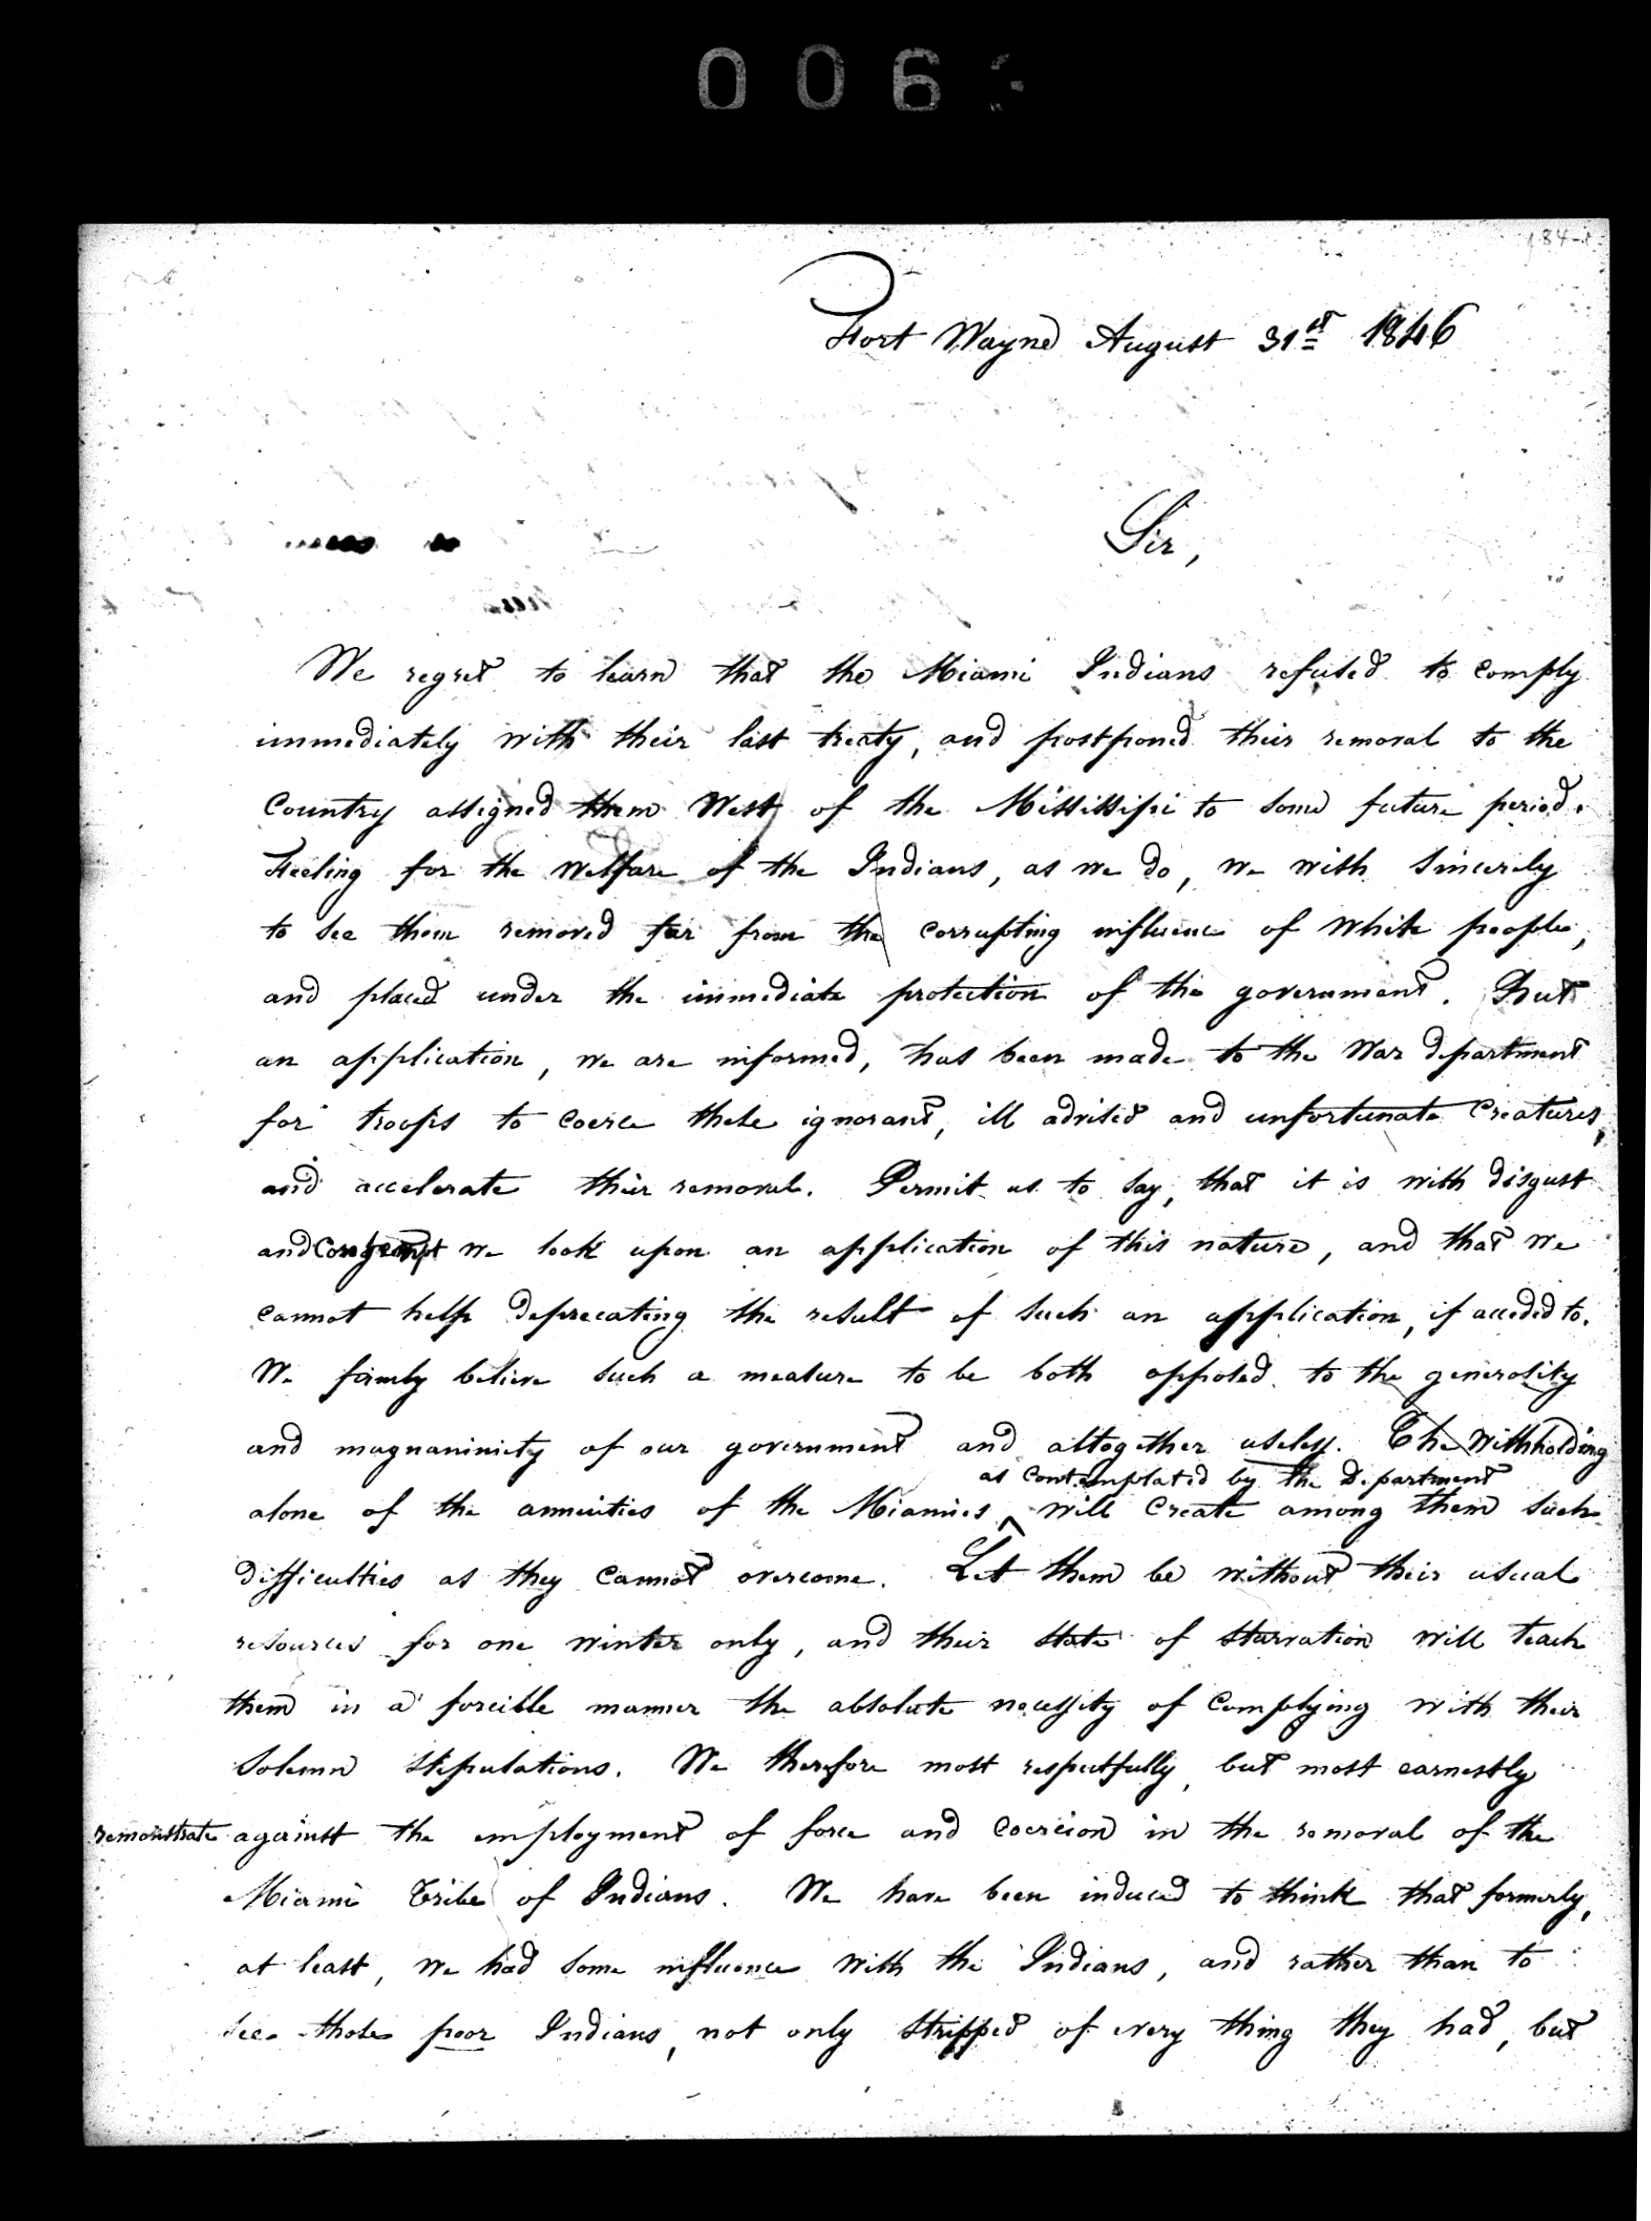 006
Fort Wayne August 31st 1846
Sir,
We regret to learn that the Miami Indians refused to comply
immediately with their last treaty, and postponed their removal to the
Country assigned them West of the Mississipi to some future period.
Feeling for the welfare of the Indians, as we do, we wish sincerely
to see them removed far from the corrupting influence of white people,
and placed under the immediate protection of the government. But
an application, we are informed, has been made to the War department
for troops to coerce these ignorant, ill advised and unfortunate Creatures,
and accelerate their removal. Permit us to say, that it is with disgust
and Contempt we look upon an application of this nature, and that we
cannot help deprecating the result of such an application, if acceded to.
We firmly believe such a measure to be both opposed to the generosity
and magnaninity of our government and altogether useless. The withholding
as contemplated by the Department
alone of the annuities of the Miamies ^ will create among them such
difficulties as they cannot overcome. Let them be without their usual
resources for one winter only, and their state of starvation will teach
them in a forcible manner the absolute necessity of complying with their
solemn stipulations. We therefore most respectfully, but most earnestly
remonstrate against the employment of force and coercion in the removal of the
Miami Tribe of Indians. We have been induced to think that formerly,
at least, we had some influence with the Indians, and rather than to
see those poor Indians, not only stripped of every thing they had, but